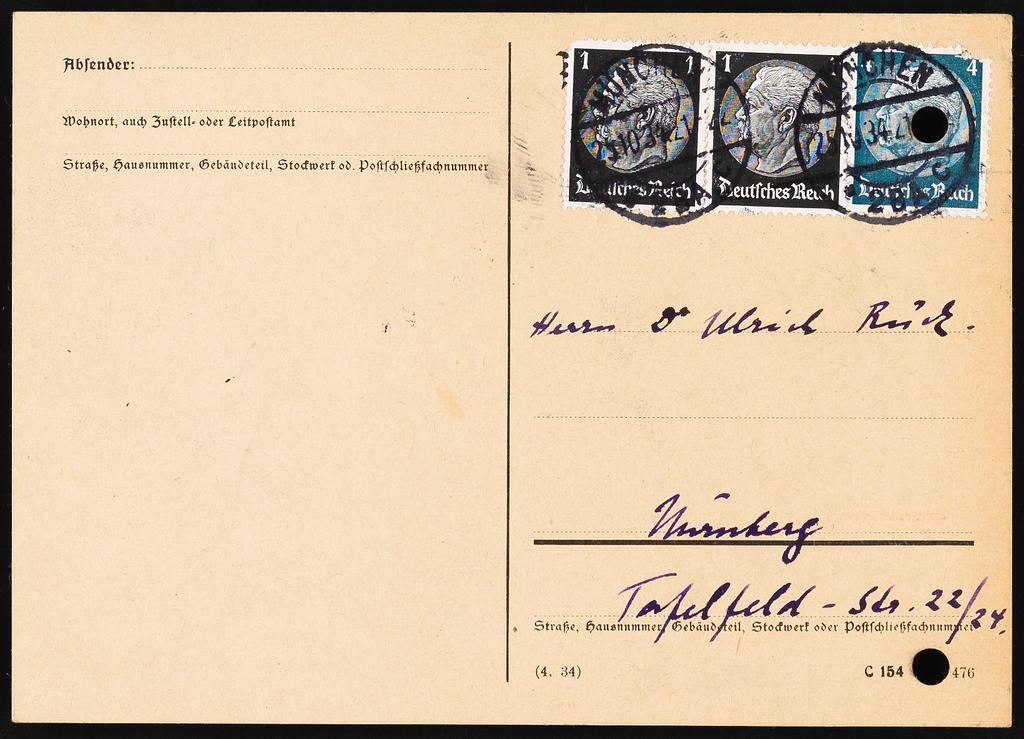 Absender:
Wohnort, auch Zustell- oder Leitpostamt
Straße, Hausnummer, Gebäudeteil, Stockwerk od. Postschließfachnummer
1 1 1 4
MÜNCHEN MÜNCHEN
25.10.34.21
Deutsches Reich Deutsches Reich Deutsches Reich
Herrn Dr Ulrich Rück.
Nürnberg
Tafelfeld - Str. 22/24.
Straße, Hausnummer, Gebäudeteil, Stockwerk oder Postschließfachnummer
(4. 34) C 154 476